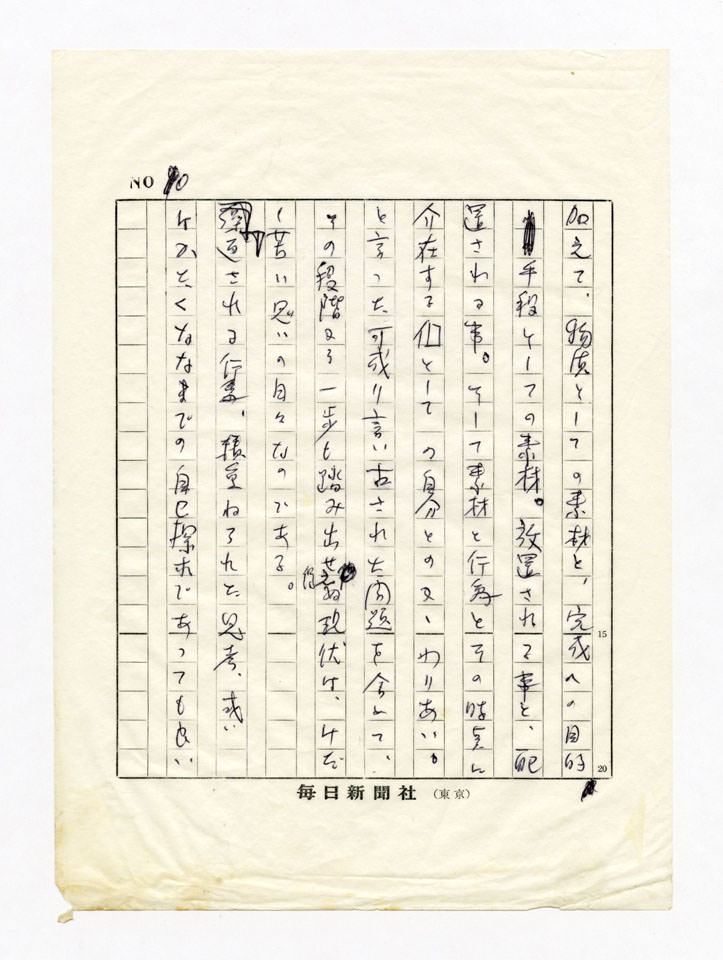 NO 10
加えて、物質としての素材と、完成への目的
手段としての素材。放置されて事と、配
置される事。そして素材と行為とその時点に
介在する個としての自分とのかかわりあい。
と言った可成り言い古された問題を含んで、
その段階より一歩も踏み出せ得ぬ現状は、けだ
く苦い思いの日々なのである。
繰返される行為、積重ねられた思考、或い
はかたくななまでの自己探求であっても良い
15
20
毎日新聞社（東京）